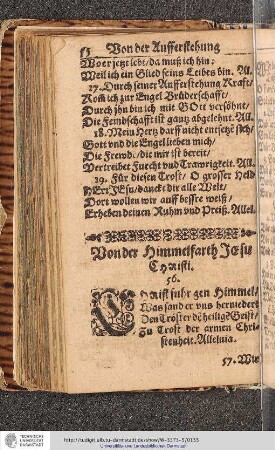 53 Von der Aufferstehung
Woer jetzt lebt/ da muß ich hin:
Weil ich ein Glied seins Leibes bin. All.
17. Durch seiner Aufferstehung Kraft/
Kom ich zur Engel Brüderschafft/
Durch jhn bin ich mit GOtt versöhnt/
Die Feindschafft ist gantz abgelehnt. All.
18. Mein Hertz darff nicht entsetzē sich/
Gott vnd die Engel lieben mich/
Die Frewd/ die mir ist bereit/
Vertreibet Furcht vnd Trawrigkeit. All.
19. Für diesen Trost/ O grosser Held
HErr JEsu/ danckt dir alle Welt/
Dort wollen wir auff besser weiß/
Erheben deinen Ruhm vnd Preiß. Allel.
Von der Himmelfarth JEsu
CHristi.
56.
CHrist fuhr gen Himmel/
Was sand er vns hernieder?
Den Tröster dē heiligē Geist/
Zu Trost der armen Chri-
stenheit. Alleluia.
57. Wir
TECHNISCHE
UNIVERSITÄT
DARMSTADT
http://tudigit.ulb.tu-darmstadt.de/show/W-3373-5/0135
Universitäts- und Landesbibliothek Darmstadt